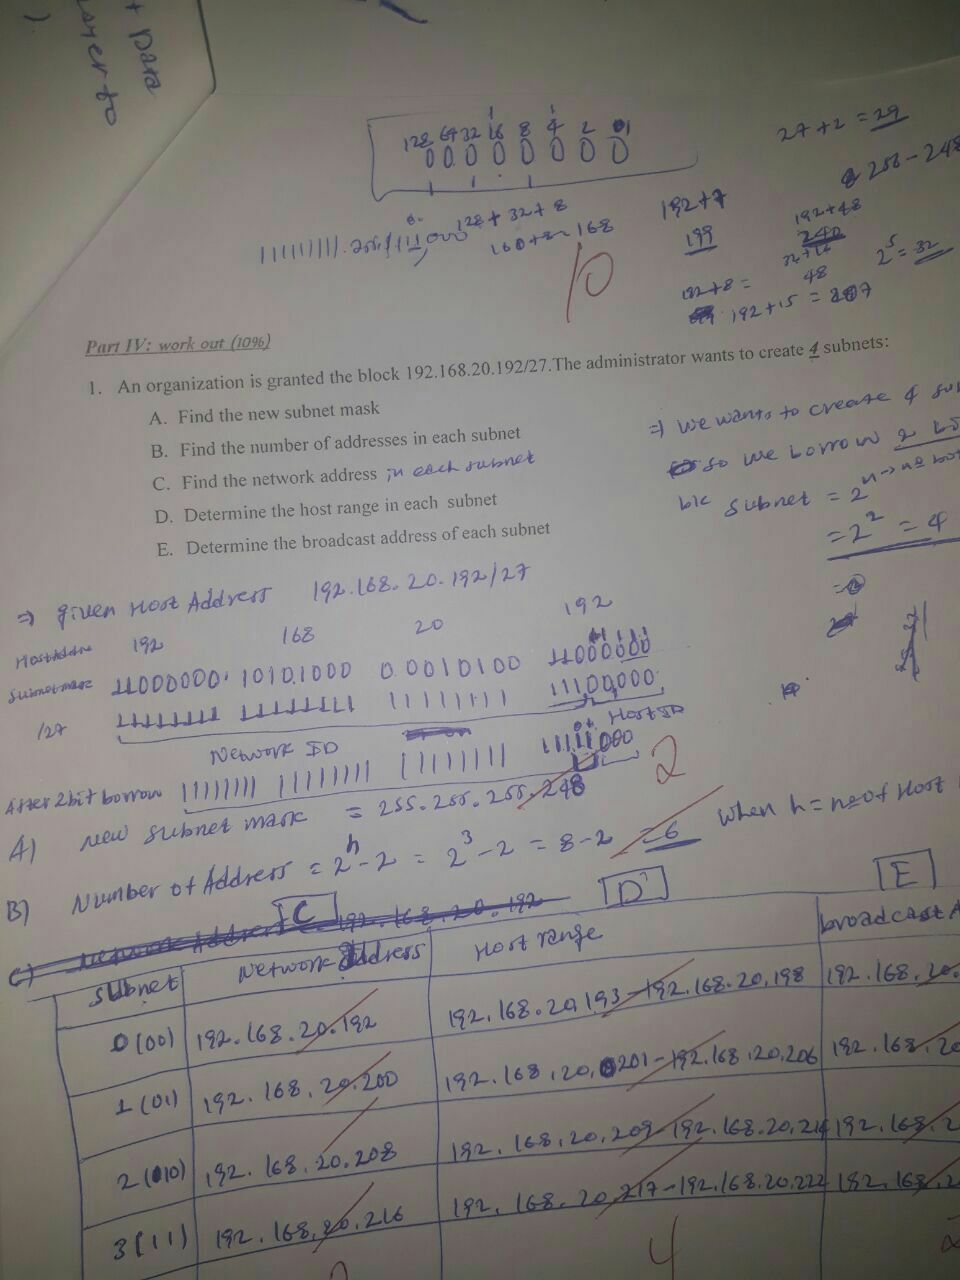 + Data
ayer to
128 64 32 16 8 4 2 1
0 0 0 0 0 0 0 0
27 + 2 = 29
256 - 248
128 + 32 + 8
160 + 8 = 168
10
192 + 7
199
192 + 48
240
32 + 16
48
2^5 = 32
192 + 8 =
192 + 15 = 207
Part IV: work out (10%)
1. An organization is granted the block 192.168.20.192/27.The administrator wants to create 4 subnets:
A. Find the new subnet mask
B. Find the number of addresses in each subnet
C. Find the network address in each subnet
D. Determine the host range in each subnet
E. Determine the broadcast address of each subnet
⇒ we wants to create 4
so we borrow 2
b/c subnet = 2^n → no
= 2^2 = 4
⇒ given Host Address 192.168.20.192/27
192 168 20 192
Host Addre 11000000. 10101000 00010100 11000000
subnet mask /27 11111111 11111111 11111111 11100000
Network ID Host ID
After 2 bit borrow 11111111 11111111 11111111 11111000
A) new subnet mask = 255.255.255.248
2
B) Number of Address = 2^h - 2 = 2^3 - 2 = 8 - 2 = 6 when h = no of Host
C) Network Address = 192.168.20.192
C D E
subnet Network address Host range broadcast A
0 (00) 192.168.20.192 192.168.20.193 - 192.168.20.198 192.168.20.
1 (01) 192.168.20.200 192.168.20.201 - 192.168.20.206 192.168.20
2 (10) 192.168.20.208 192.168.20.209 - 192.168.20.214 192.168.2
3 (11) 192.168.20.216 192.168.20.217 - 192.168.20.222 192.168.2
4